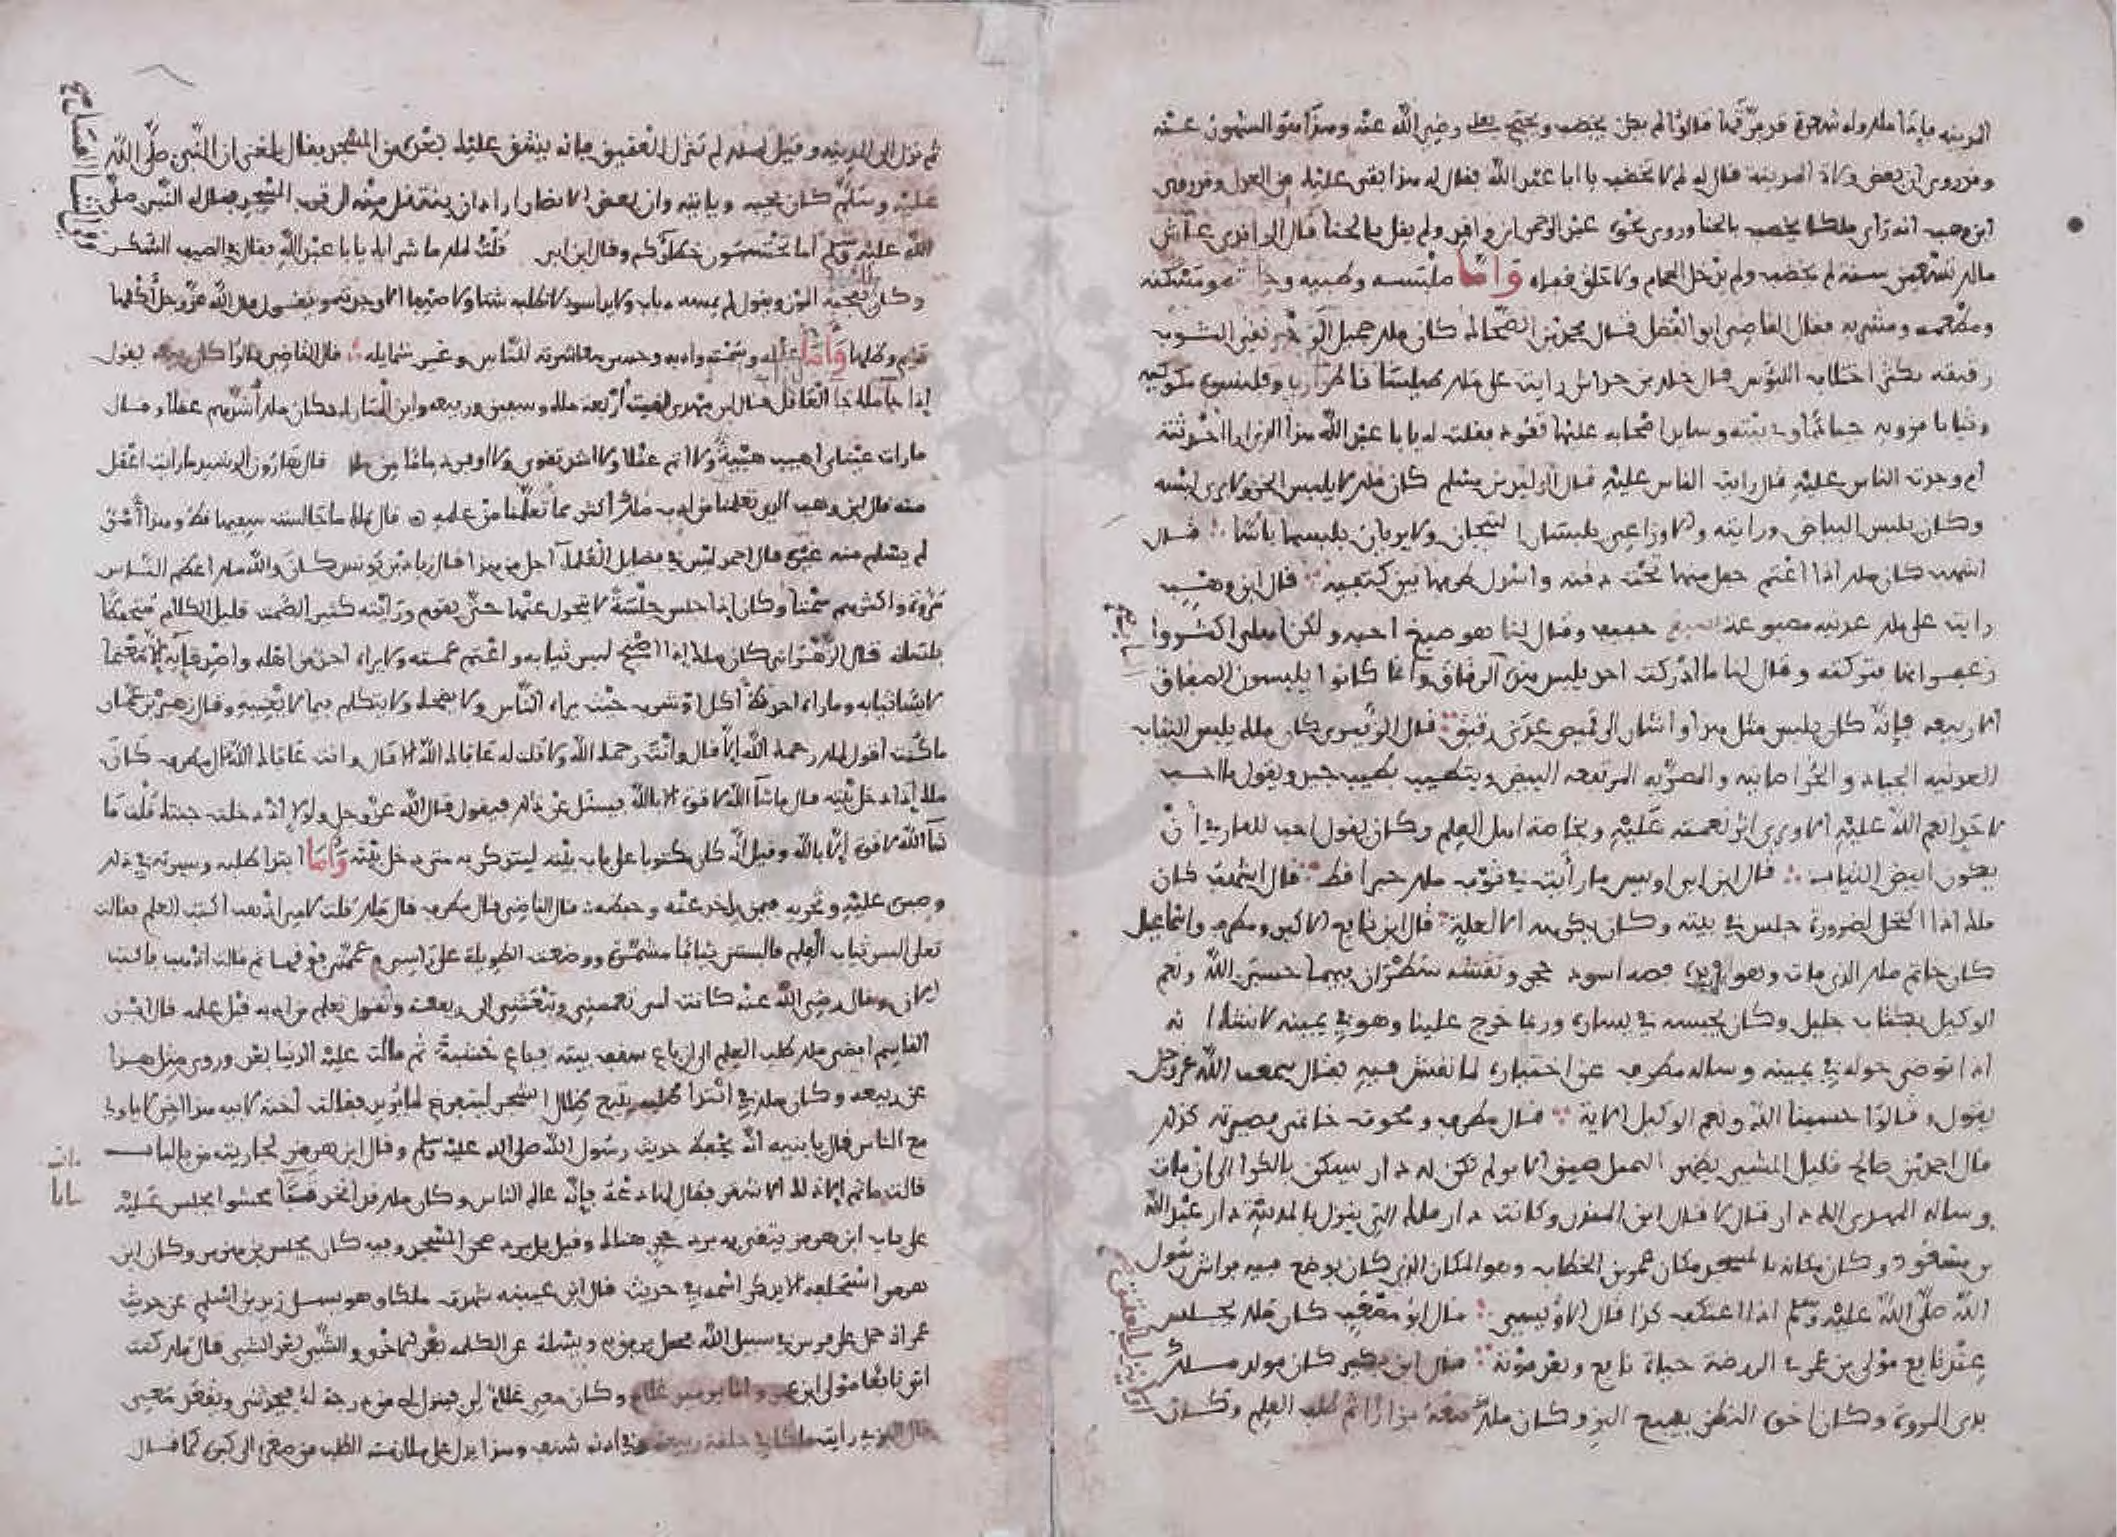 المدينه فاما ملك وله شعرة فرقها فقالوا لم يكن يخضب ويحتج بعلي رضي الله عنه وهذا هو المشهور عنه
وقد روى ان بعض ولاة المدينة قال له لم لا تخضب يا ابا عبد الله فقال له هذا بقي عليك من العدل وقد روى
ابن وهب انه رأى ملكا يخضب بالحنا وروى نحوه عبد الرحمن بن واقد ولم يقل بالحنا قال الواقدي عاش
مالك تسعين سنة لم يخضب ولم يدخل الحمام ولا حلق قفاه واما ملبسه وطيبه ومسكنه
ومطعمه ومشربه فقال القاضي ابو الفضل قال محمد بن الضحاك كان ملك جميل الوجه نقي الثوب
رقيقه يكثر اختلاف اللبوس قال خلد بن خداش رايت على ملك طيلسانا طرازيا وقلنسوة متركبة
وثيابا مروية جيادا وفي بيته وسايد اصحابه عليها قعود فقلت له يا با عبد الله هذا الذي اراه احدثته
ام وجدت الناس عليه قال رايت الناس عليه قال الوليد بن مسلم كان ملك لا يلبس الخز ولا يرى لبسه
وكان يلبس البياض ورايته والاوزاعي يلبسان السيجان ولا يريان بلبسها باسا قال
اشهب كان ملك اذا اعتم جعل منها تحت دقنه واسدل طرفها بين كتفيه قال ابن وهب
رايت على ملك عدنيه مصبوغة بمشق خفيف وقال لنا هو صبغ احبه ولكن اهلي اكثروا
زعفرانها فتركته وقال لنا ما ادركت احدا يلبس هذه الرقاق وانما كانوا يلبسون الصفاق
الا ربيعه فانه كان يلبس مثل هذا واشار الى قميص عدني رقيق قال الزبيري كان ملك يلبس الثياب
العدنيه الجياد والخراسانيه والمصريه المرتفعه البيض ويتطيب بطيب جيد ويقول ما احب
لاحد انعم الله عليه الا ويرى اثر نعمته عليه وبخاصة اهل العلم وكان يقول احب للقاري ان
يكون ابيض الثياب قال ابن ابي اويس ما رأيت في ثوب ملك حبرا قط قال اشهب كان
ملك اذا اكتحل لضرورة جلس في بيته وكان يكرهه الا لعلة قال ابن نافع الاكبر ومطرف واسماعيل
كان خاتم ملك الذي مات وهو في يده فصه اسود حجر ونقشه سطران فيهما حسبي الله ونعم
الوكيل بكتاب جليل وكان يحبسه في يساره وربما خرج علينا وهو في يمينه لا نشك انه
اذا توضى حوله في يمينه وساله مطرف عن اختياره لما نقش فيه فقال سمعت الله عز وجل
يقول وقالوا حسبنا الله ونعم الوكيل الاية قال مطرف ومحوت خاتمي فصيرته كذلك
قال احمد بن صالح قليل المشي يظهر التجمل ضيق الامر لم تكن له دار يسكن بالكرا الى ان مات
وساله المهدي الك دار قال لا قال ابن المنذر وكانت دار ملك التي ينزل بالمدينة دار عبد الله
بن مسعود وكان مكانه بالمسجد مكان عمر بن الخطاب وهو المكان الذي كان يوضع فيه فراش رسول
الله صلى الله عليه وسلم اذا اعتكف كذا قال الاويسي قال ابو مصعب كان ملك يجلس
عند نافع مولى بن عمر في الروضة حياة نافع وبعد موته قال ابن بكير كان مولد ملك
بذي المروة وكان اخوه النضر يبيع البز وكان ملك معه بزازا ثم طلب العلم وكان
ثم نزل الى المدينه وقيل لملك لم تنزل العقيق فانه يشق عليك بعده من المسجد فقال بلغني ان النبي صلى الله
عليه وسلم كان يحبه وياتيه وان بعض الانصار اراد ان ينتقل منه الى قرب المسجد فقال له النبي صلى
الله عليه وسلم اما تحتسبون خطاكم وقال ابن ابي قلت لملك ما شرابك يا با عبد الله فقال في الصيف السكر
وكان يعجبه الموز ويقول لم يمسه ذباب ولا يد اسود لا تطلبه شتاء ولا صيفا الا وجدته ويقول قال الله عز وجل اكلها
دايم وظلها واما عقله وسمته وادبه وحسن معاشرته للناس وغير شمايله قال القاضي قالوا كان ربيعه يقول
اذا جا ملك جا العاقل قال ابن مهدي لقيت اربعة ملك وسفين وربيعه وابن المبارك فكان ملك اشدهم عقلا وقال
ما رات عيناي اهيب هيبة ولا اتم عقلا ولا اشد تقوى ولا اوفر دماغا من ملك قال هارون الرشيد ما رايت اعقل
منه قال ابن وهب الذي تعلمنا من ادب ملك اكثر مما تعلمنا من علمه قال ملك ما جالست سفيها قط وهذا امر
لم يسلم منه غيره قال احمد ليس في فضايل العلما اجل من هذا قال زياد بن يونس كان والله ملك اعظم الناس
مروة واكثرهم سمتا وكان اذا جلس جلسة لا يتحول عنها حتى يقوم ورايته كثير الصمت قليل الكلام متحفظا
بلسانه قال الزهراني كان ملك اذا اصبح لبس ثيابه واعتم عمته ولا يراه احد من اهله واصدقايه الا متعمما
لابسا ثيابه وما راه احد قط اكل او شرب حيث يراه الناس ولا يضحك ولا يتكلم فيما لا يعنيه وقال زهير بن عباد
ما كنت اقول لملك رحمك الله الا قال وانت رحمك الله ولا قلت له عافاك الله الا قال وانت عافاك الله قال مطرف كان
ملك اذا دخل بيته قال ما شا الله لا قوة الا بالله فيسئل عن ذلك فيقول قال الله عز وجل ولولا اذ دخلت جنتك قلت ما
شا الله لا قوة الا بالله وقيل انه كان مكتوبا على باب بيته ليتذكر به متى يدخل بيته واما ابتدا طلبه وسيرته في ذلك
وصبره عليه وتحريه فيمن ياخذ عنه وحفظه قال القاضي قال مطرف قال ملك قلت لامي اذهب اكتب العلم فقالت
تعلى البس ثياب العلم فالبستني ثيابا مشمرة ووضعت الطويلة على راسي وعممتني فوقها ثم قالت اذهب فاكتب
الان وقال رضي الله عنه كانت امي تعممني وتبعثني الى ربيعه وتقول تعلم من ادبه قبل علمه قال ابن
القاسم افضى بملك طلب العلم الى ان باع سقف بيته فباع خشبه ثم مالت عليه الدنيا بعد وروى مثل هذا
عن ربيعه وكان ملك في ابتدا طلبه يتبع ظلال الشجر ليتفرغ لما يريد فقالت اخته لابيه هذا اخي لا ياوى
مع الناس قال يا بنيه انه يحفظ حديث رسول الله صلى الله عليه وسلم وقال ابن هرمز لجاريته من بالباب
قالت ما ثم الا ذلك الاشقر فقال لها دعه فانه عالم الناس وكان ملك قد اتخذ تبانا محشوا يجلس عليه
على باب ابن هرمز يتقي به برد حجر هنالك وقيل بل برد صحن المسجد وفيه كان يجلس بن هرمز وكان ابن
هرمز استحلفه الا يذكر اسمه في حديث قال ابن عيينه شهدت ملكا وهو يسل زيد بن اسلم عن حديث
عمر انه حمل على فرس في سبيل الله فجعل يرفق به ويسله عن الكلمه بعد الكلمه والشي بعد الشي قال ملك كنت
اتي نافعا مولى ابن عمر وانا يوميذ غلام وكان معي غلام لي فينزل لي من درجة له فيحدثني ويقعد معي
قال الزبيري رايت ملكا في حلقة ربيعة وفي اذنه شنف وهذا يدل على ملازمته الطلب من صغره الى كبره كما قال